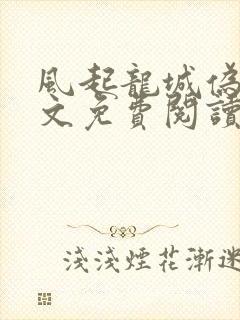 風起龍城偽
文免費閱讀
淺淺煙花漸迷